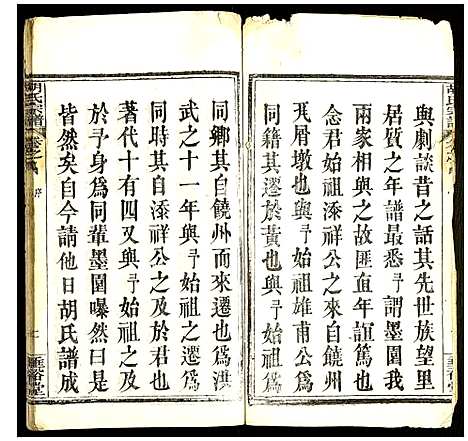 與劇談昔之話其先世族望里
居質之年譜最悉予謂墨園我
兩家相與之故匪魚年誼篤也
念君始祖添祥公之自饒州
瓦屑墩也與予始祖雄甫公為
同籍其遷於黃也與
同鄉其自饒州而來遷也為洪
武之十一年與予始祖之遷為
同時其自添祥公之及於君也
著代十有四又與予始祖之及
於予身為同輩墨園曝然曰與
皆然矣自今請他日胡氏譜成
胡氏宗譜
序